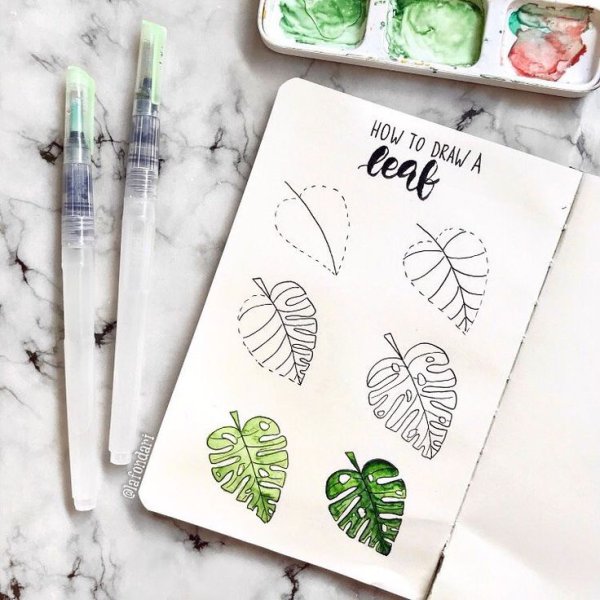 HOW TO DRAW A
leaf
@lafordari